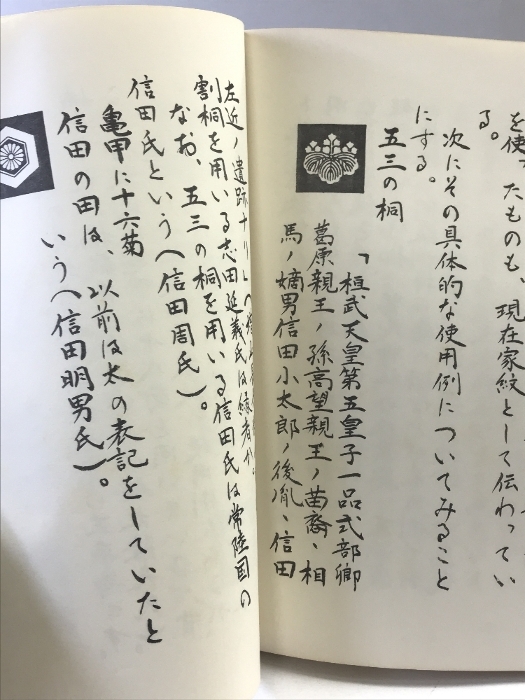 を使ったものも、現在家紋として伝わってい
る。
次にその具体的な使用例についてみること
にする。
五三の桐
「桓武天皇第五皇子一品式部卿
葛原親王ノ孫高望親王ノ苗裔、相
馬ノ嫡男信田小太郎ノ後胤、信田
左近ノ遺跡ナリ」
割桐を用いる志田延義氏は縁者か。
なお、五三の桐を用いる信田氏は常陸国の
信田氏という(信田周氏)。
亀甲に十六菊
信田の田は、以前は太の表記をしていたと
いう(信田明男氏)。